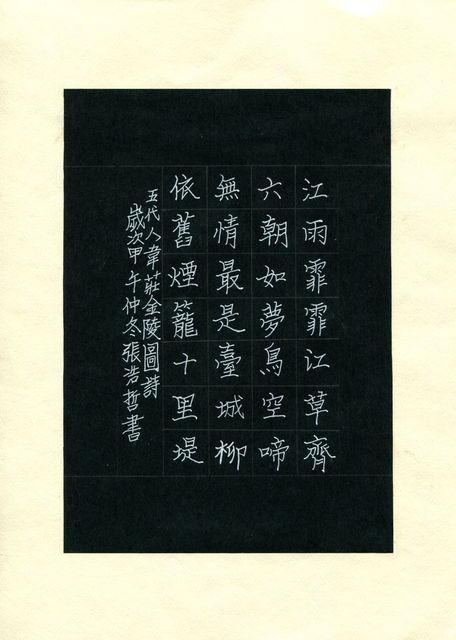 江雨霏霏江草齊
六朝如夢鳥空啼
無情最是臺城柳
依舊煙籠十里堤
五代人韋莊金陵圖詩
歲次甲午仲冬張浩哲書